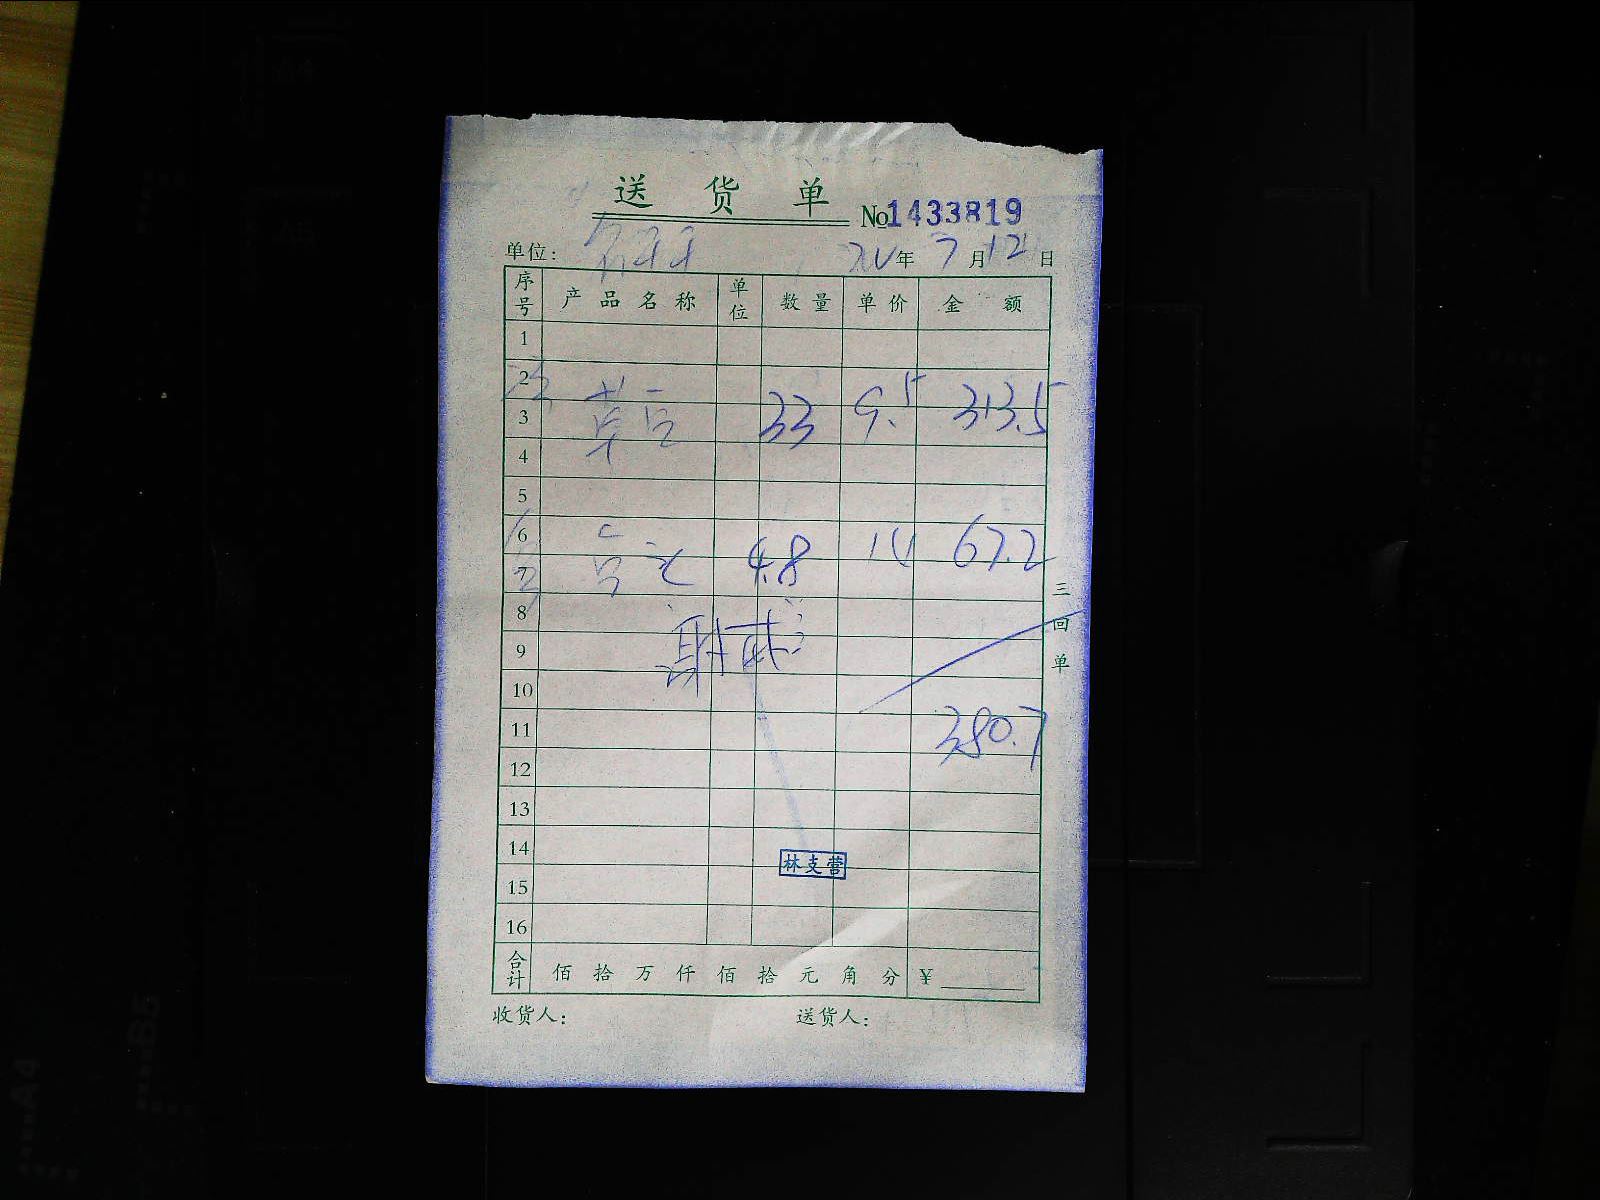 送货单 №1433819
单位: 年 7 月 12 日
序号 产品名称 单位 数量 单价 金额
1
2
3 33 9.5 313.5
4
5
6
7 4.8 14 67.2
8
9
10
11 380.7
12
13
14
林支营
15
16
合计 佰拾万仟佰拾元角分 ¥
收货人: 送货人:
三回单